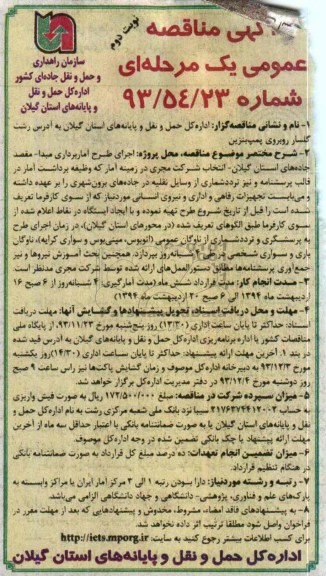 آگهی مناقصه
نوبت دوم
عمومی یک مرحله‌ای
شماره ۹۳/۵٤/۲۳
سازمان راهداری
و حمل و نقل جاده‌ای کشور
اداره کل حمل و نقل
و پایانه‌های استان گیلان
۱- نام و نشانی مناقصه‌گزار: اداره کل حمل و نقل و پایانه‌های استان گیلان به آدرس رشت
گلسار روبروی پمپ‌بنزین
۲- شرح مختصر موضوع مناقصه، محل پروژه: اجرای طرح آماربرداری مبدا- مقصد
جاده‌های استان گیلان- انتخاب شرکت مجری در زمینه آمار که وظیفه برداشت آمار در
قالب پرسشنامه و نیز ترددشماری از وسایل نقلیه در جاده‌های برون‌شهری را بر عهده داشته
و می‌بایست تجهیزات رفاهی و اداری و نیروی انسانی موردنیاز که از سوی کارفرما تعریف
شده است را قبل از تاریخ شروع طرح تهیه نموده و با ایجاد ایستگاه در نقاط اعلام شده از
سوی کارفرما طبق الگوهای تعریف شده (در محورهای استان گیلان)، در زمان اجرای طرح
به پرسشگری و ترددشماری از ناوگان عمومی (اتوبوس، مینی‌بوس و سواری کرایه)، ناوگان
باری و سواری شخصی در ۴ شبانه‌روز بپردازد. همچنین بحث آموزش نیروها و نیز
جمع‌آوری پرسشنامه‌ها مطابق دستورالعمل‌های ارائه شده توسط شرکت مجری مدنظر است
۳- مدت انجام کار: مدت قرارداد شش ماه (مدت آمارگیری: ۴ شبانه‌روز از ۶ صبح ۱۶
اردیبهشت ماه ۱۳۹۴ الی ۶ صبح ۲۰ اردیبهشت ماه ۱۳۹۴)
۴- مهلت و محل دریافت اسناد، تحویل پیشنهادها و گشایش آنها: مهلت دریافت
اسناد: حداکثر تا پایان ساعت اداری (۱۳/۳۰) روز پنج‌شنبه مورخ ۹۳/۱۱/۲۳ از پایگاه ملی
مناقصات کشور یا اداره برنامه‌ریزی اداره کل حمل و نقل و پایانه‌های گیلان به آدرس قید شده
در بند ۱. آخرین مهلت ارائه پیشنهاد: حداکثر تا پایان ساعت اداری (۱۴/۳۰) روز یکشنبه
مورخ ۹۳/۱۲/۳ به دبیرخانه اداره کل موصوف و زمان گشایش پاکت‌ها نیز راس ساعت ۹ صبح
روز دوشنبه مورخ ۹۳/۱۲/۴ در دفتر مدیریت اداره کل برگزار خواهد شد.
۵- میزان سپرده شرکت در مناقصه: مبلغ ۱۷۲/۵۰۰/۰۰۰ ریال به صورت فیش واریزی
به حساب ۲۱۷۶۳۷۴۴۱۲۰۰۲ سیبا نزد بانک ملی شعبه مرکزی رشت به نام اداره کل حمل و
نقل و پایانه‌های استان گیلان یا به صورت ضمانتنامه بانکی با اعتبار حداقل سه ماه از آخرین
مهلت ارائه پیشنهاد یا چک بانکی تضمین شده در وجه اداره کل موصوف.
۶- میزان تضمین انجام تعهدات: ده درصد مبلغ کل قرارداد به صورت ضمانتنامه بانکی
در هنگام تنظیم قرارداد.
۷- رتبه و رشته موردنیاز: دارا بودن رتبه ۱ الی ۳ مرکز آمار ایران یا مراکز وابسته به
پارک‌های علم و فناوری، پژوهشی- دانشگاهی و جهاد دانشگاهی الزامی می‌باشد.
۸- به پیشنهادهای فاقد امضاء، مشروط، مخدوش و پیشنهادهایی که بعد از مهلت مقرر در
فراخوان واصل شود مطلقا ترتیب اثر داده نخواهد شد.
برای کسب اطلاعات بیشتر رجوع کنید به سایت: http://iets.mporg.ir
اداره کل حمل و نقل و پایانه‌های استان گیلان